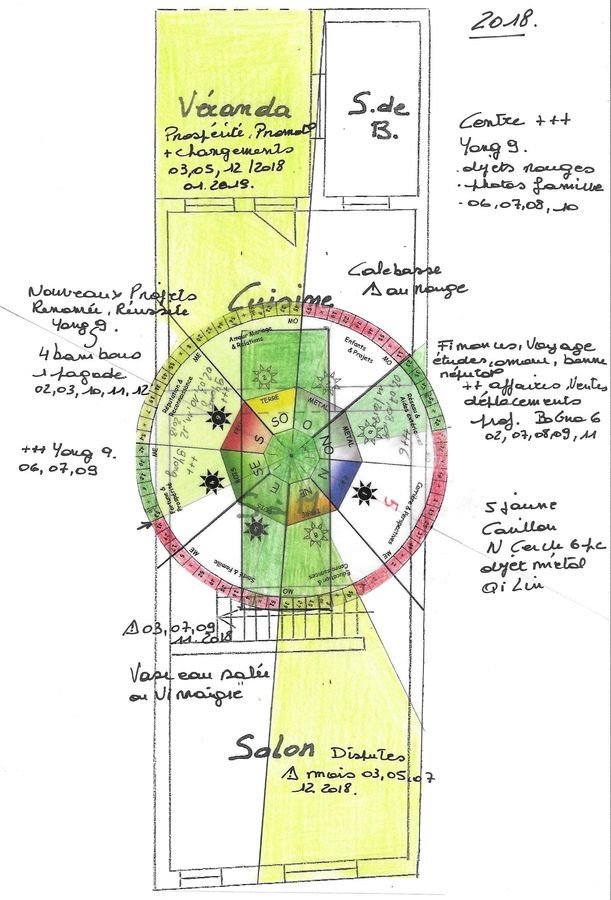 2018.
Véranda
Prospérité, Promotº
+ changements
03,05, 12/2018
01.2019.
S.de
B.
Centre +++
Yang 9.
. objets rouges
. photos famille
. 06,07,08,10
Calebasse
⚠ au rouge
Cuisine
Nouveaux Projets
Renomée, Réussite
Yang 9.
4 bambous
1 façade
02,03,10,11,12
+++ Yang 9.
06,07,09
Finances, Voyage
études, amour, bonne
++ affaires Ventes
déplacements
02,07,08,09,11
5 jaune
Carillon
objet métal
Qi Lin
MO
Amour Mariage
& Relations
Enfants
& Projets
TERRE
METAL
SO
O
NO
METAL
S
SE
E
NE
TERRE
5
Carrière & Perspectives
Education &
Connaissances
Santé & Famille
ME
MO
⚠ 03,07,09,
11.2018
Vase eau salée
ou Vinaigre
Salon Disputes
⚠ mois 03,05,07
12.2018.